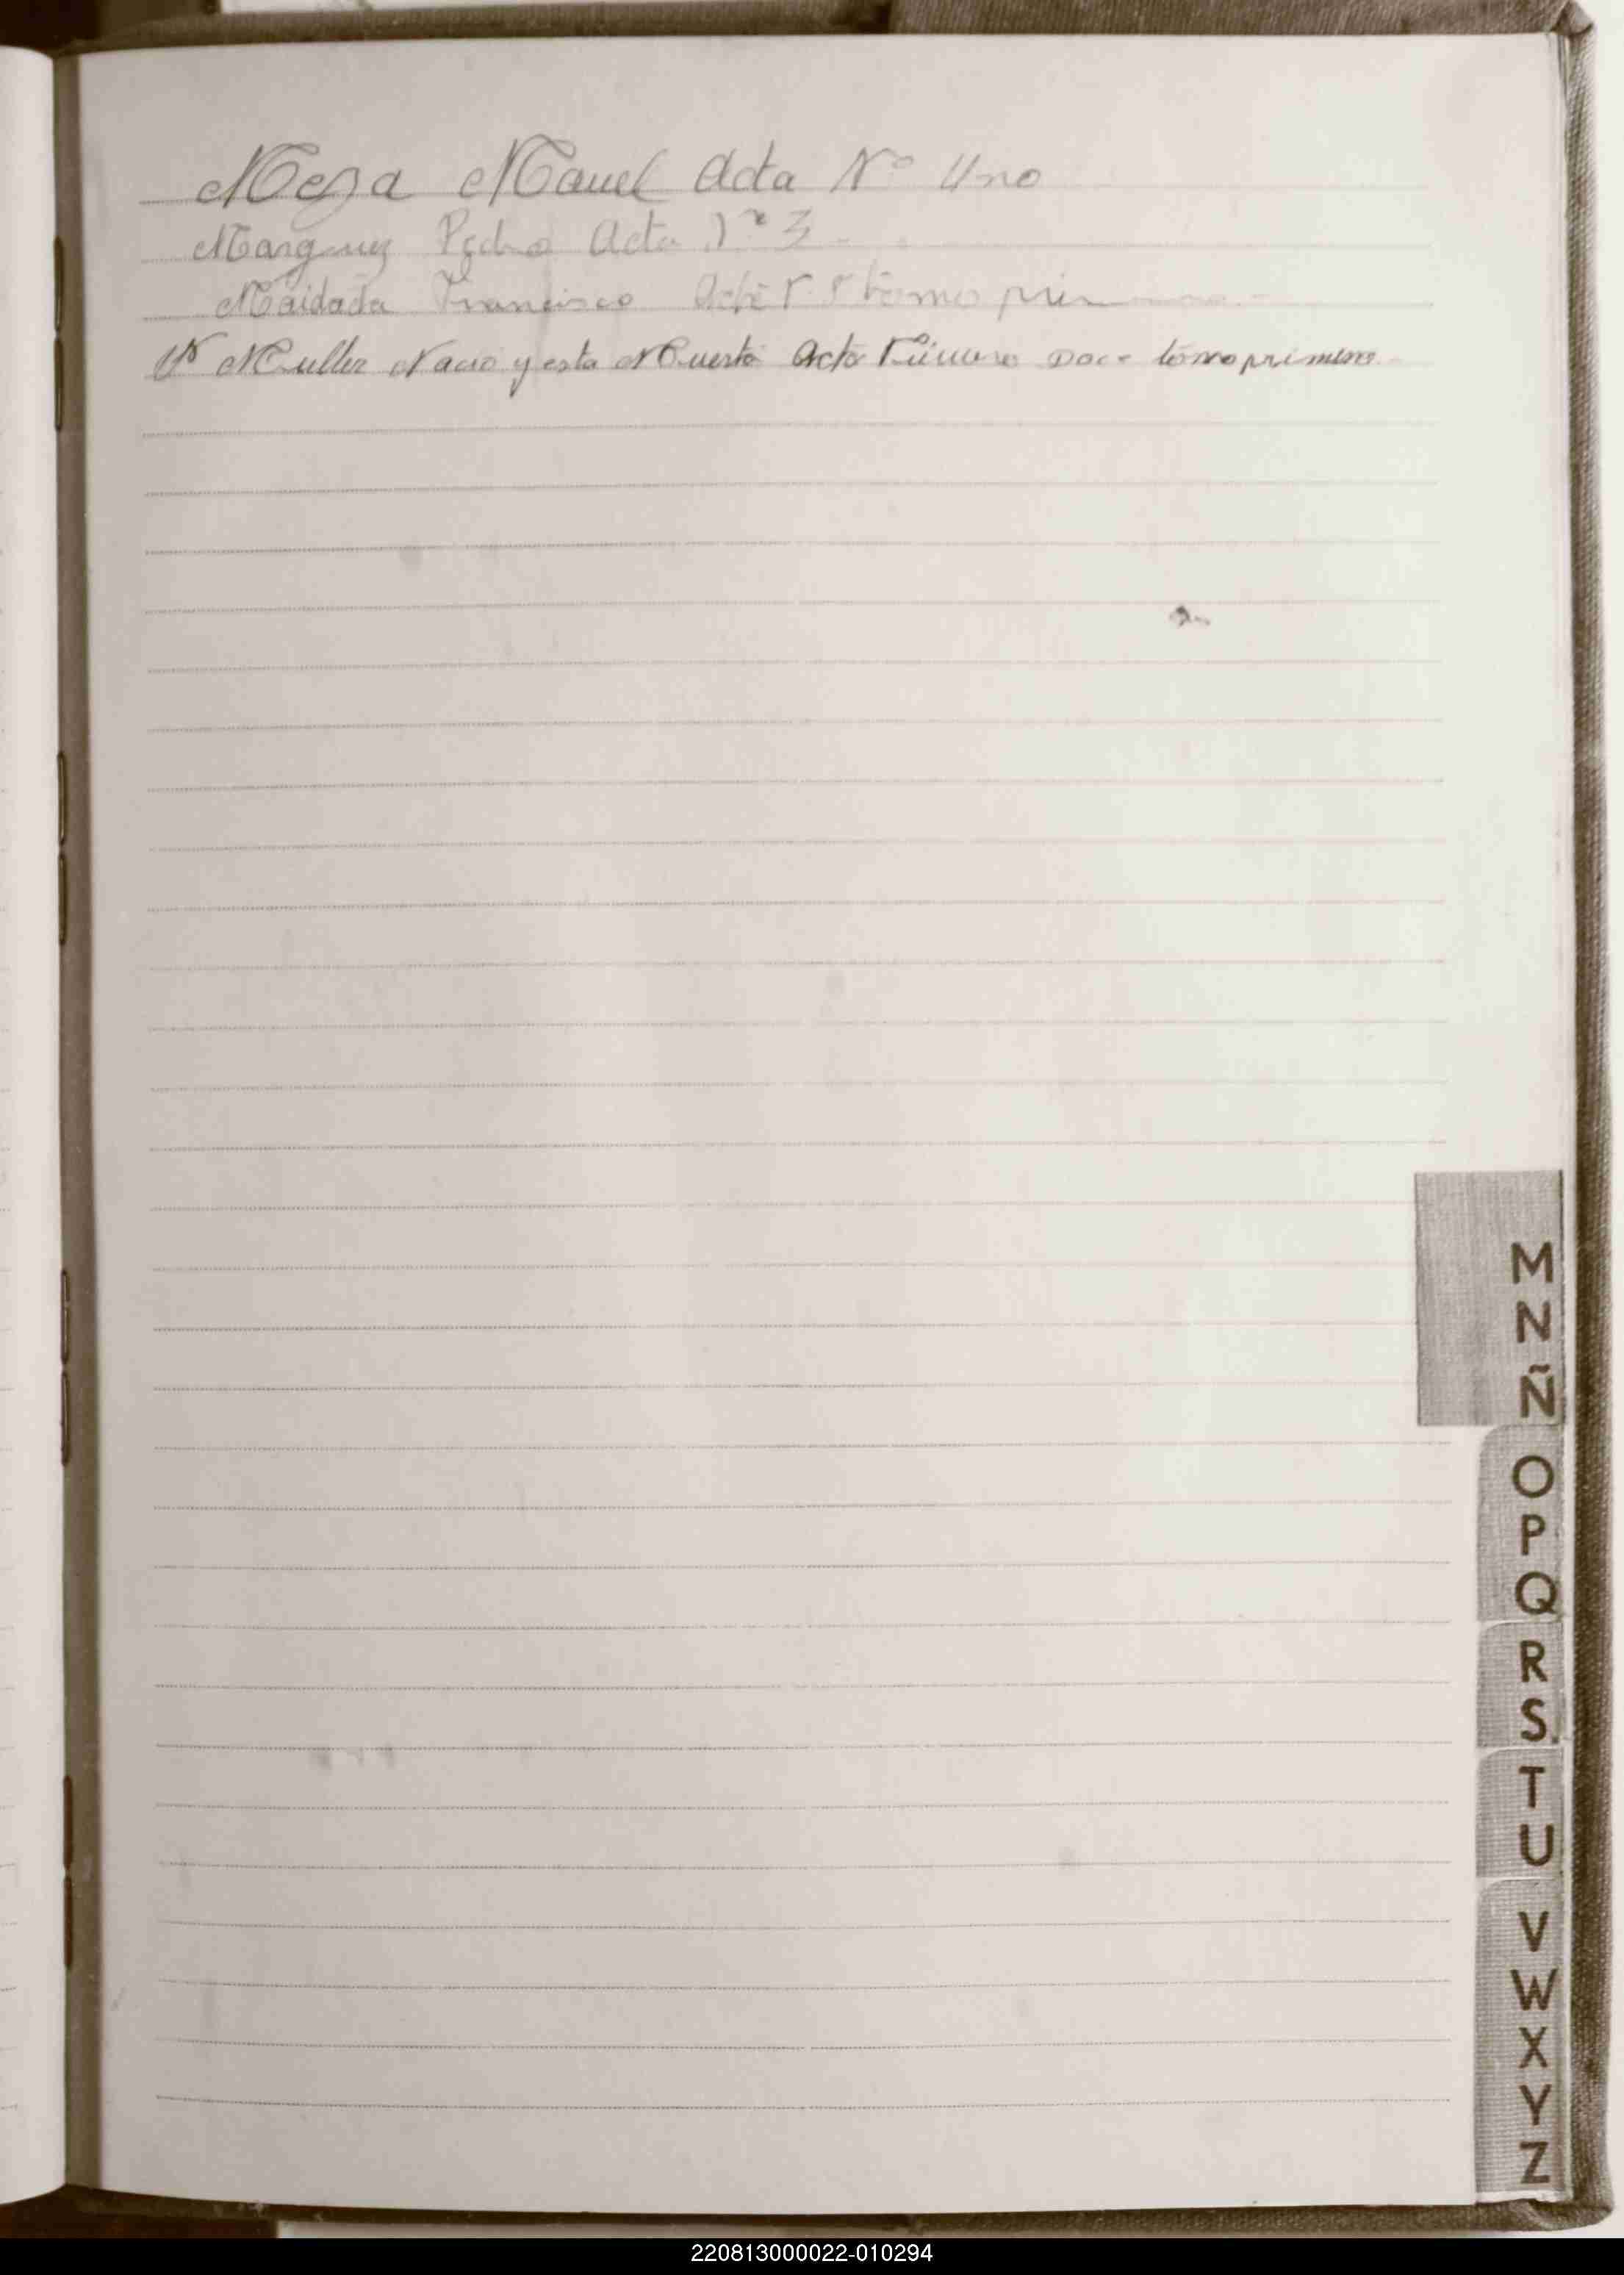 Meza Manuel Acta Nº Uno
Pedro Acta Nº 3
Maidada Francisco Acta tomo
Muller Nacio y esta Muerta Acta Número Doce tómo primero
M
N
Ñ
O
P
Q
R
S
T
U
V
W
X
Y
Z
220813000022-010294